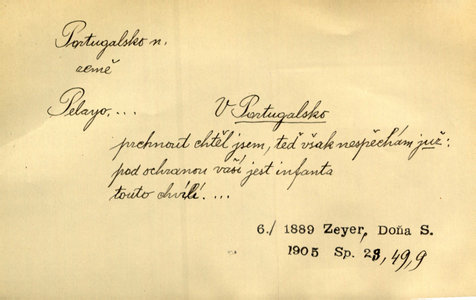 Portugalsko n.
země
Pelayo, ... V Portugalsko
prchnout chtěl jsem, teď však nespěchám již:
pod ochranou vaší jest infanta
touto chvílí. ...
6./ 1889 Zeyer, Doňa S.
1905 Sp. 23, 49,9